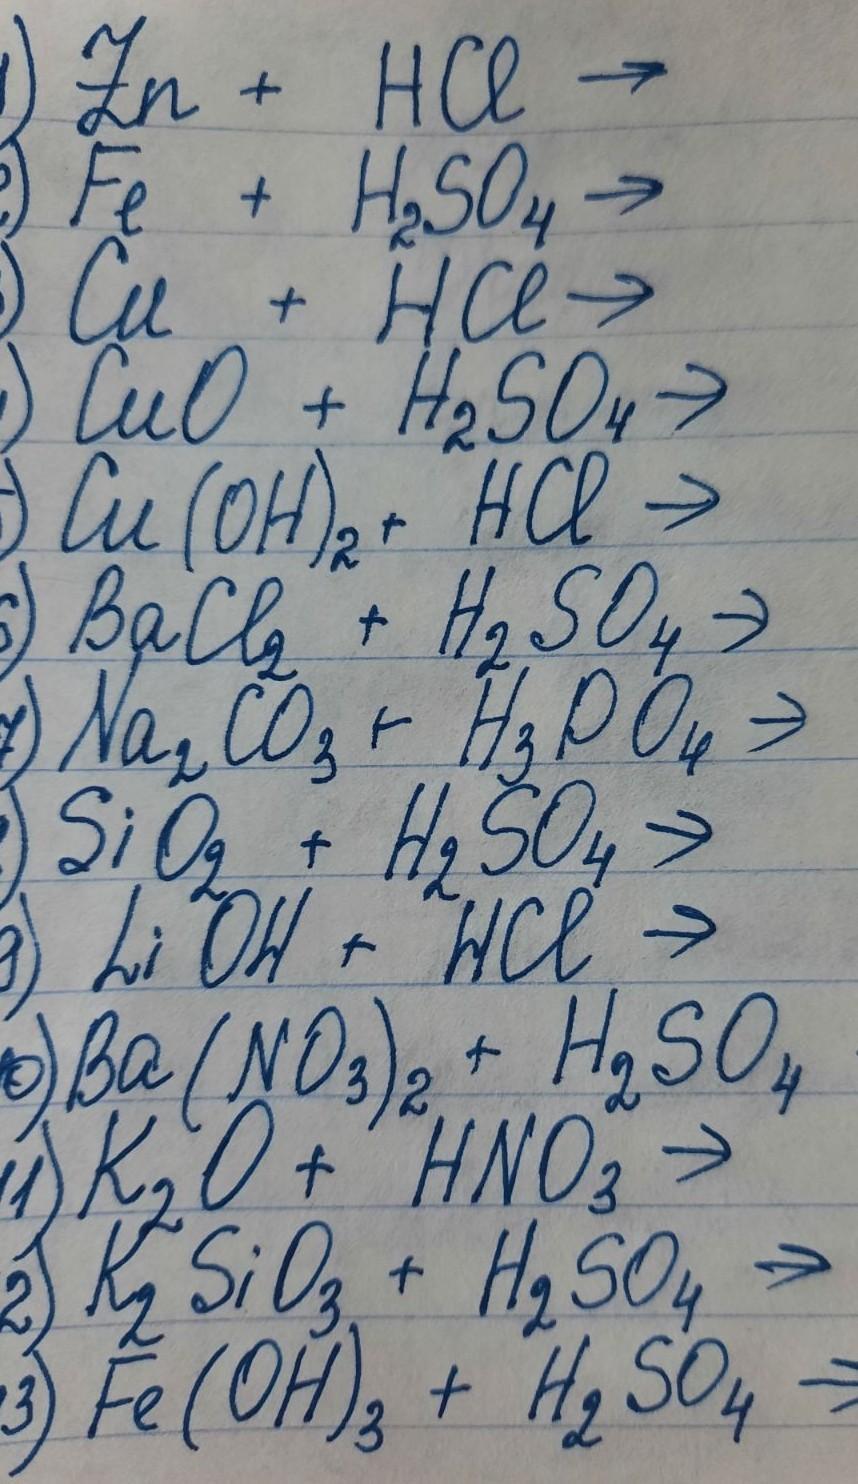 1) Zn + HCl →
2) Fe + H₂SO₄ →
3) Cu + HCl →
4) CuO + H₂SO₄ →
5) Cu(OH)₂ + HCl →
6) BaCl₂ + H₂SO₄ →
7) Na₂CO₃ + H₃PO₄ →
8) SiO₂ + H₂SO₄ →
9) LiOH + HCl →
10) Ba(NO₃)₂ + H₂SO₄
11) K₂O + HNO₃ →
12) K₂SiO₃ + H₂SO₄ →
13) Fe(OH)₃ + H₂SO₄ →